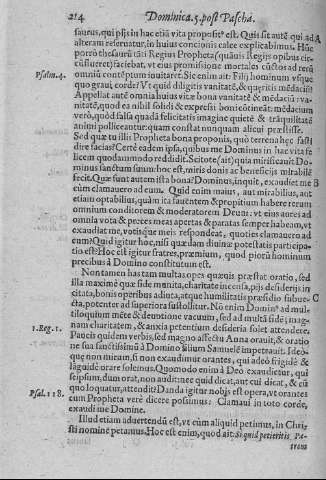 214 Dominica. 5. post Paschá.
saurus, qui pijs in hac etiã vita proposit⁹ est. Quis sit autē qui ad
alteram referuatur, in huius concionis calce explicabimus. Hûc
porrò thesaurū tāti Regius Propheta (quāuis Regijs opibus cir-
cũfluerct) faciebat, vt eius promissione mortales cũctos ad rerũ
Psalm. 4. omniũ contēptum inuitaret. Sic enim ait: Filij hominum vsque
quo graui, corde? Vt quid diligitis vanitatē, & quæritis mēdaciũ?
Appellat autē omnia huius vitæ bona vanitatē & mēdaciũ: va-
nitatē, quod ea nihil solidi & expressi boni cōtineāt: mēdacium
verò, quòd falsa quadā felicitatis imagine quietē & trāquilitatē
animi polliceantur, quam constat nunquam alicui præstitisse.
Sed quæ tu illis Propheta bona proponis, quò terrena hæc fasti
dire facias? Certè eadem ipsa, quibus me Dominus in hac vita fe
licem quodammodo reddidit. Scitote (ait) quia mirificauit Do-
minus sanctum suum: hoc est, miris donis ac beneficijs mirabilē
fecit. Quæ sunt autem ista bona? Dominus, inquit, exaudiet me
cùm clamauero ad eum. Quid enim maius, aut mirabilius, aut
etiam optabilius, quàm ita fauentem & propitium habere rerum
omnium conditorem & moderatorem Deum: vt eius aures ad
omnia vota & preces meas apertas & paratas semper habeam, vt
exaudiat me, votisque meis respondeat, quoties clamauero ad
eum? Quid igitur hoc, nisi quædam diuinæ potestatis participa-
tio est? Hoc est igitur fratres, præmium, quod piorũ hominum
precibus à Domino constitutum est.
Non tamen has tam multas opes quæuis præstat oratio, sed
illa maximè quæ fide munita, charitate incensa, pijs desiderijs in
citata, bonis operibus adiuta, atque humilitatis præsidio subue-
cta, potenter ad superiora sustollitur. No enim Dominᵃ ad mul-
tiloquium mēte & deuotione vacuum, sed ad multā fidē, mag-
1. Reg. 1. nam charitatem, & anxia petentium desideria solet attendere.
Paucis quidem verbis, sed magno affectu Anna orauit, & oratio
ne sua sanctissimũ à Domino filium Samuelē impetrauit. Ideó-
que non mirum, si non exaudimur orantes, qui adeò frigidè &
languidè orare solemus. Quomodo enim à Deo exaudietur, qui
seipsum, dum orat, non audit: nec quid dicat, aut cui dicat, & cũ
quo loquatur, attendit? Danda igitur nobis est opera, vt orantes
Psal. 118. cum Propheta verè dicere possimus: Clamaui in toto corde,
exaudi me Domine.
Illud etiam aduertendũ est, vt cùm aliquid petimus, in Chri-
sti nomine petamus. Hoc est enim, quod ait: Si quid petieritis Pa-
trem